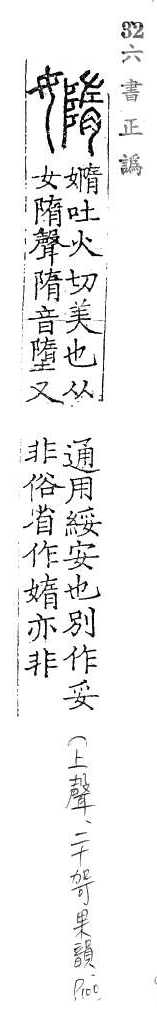 32 六書正譌
嫷吐火切美也从
女隋聲隋音墮又
通用綏安也別作妥
非俗省作媠亦非
(上聲、二十哿果韻、P100)